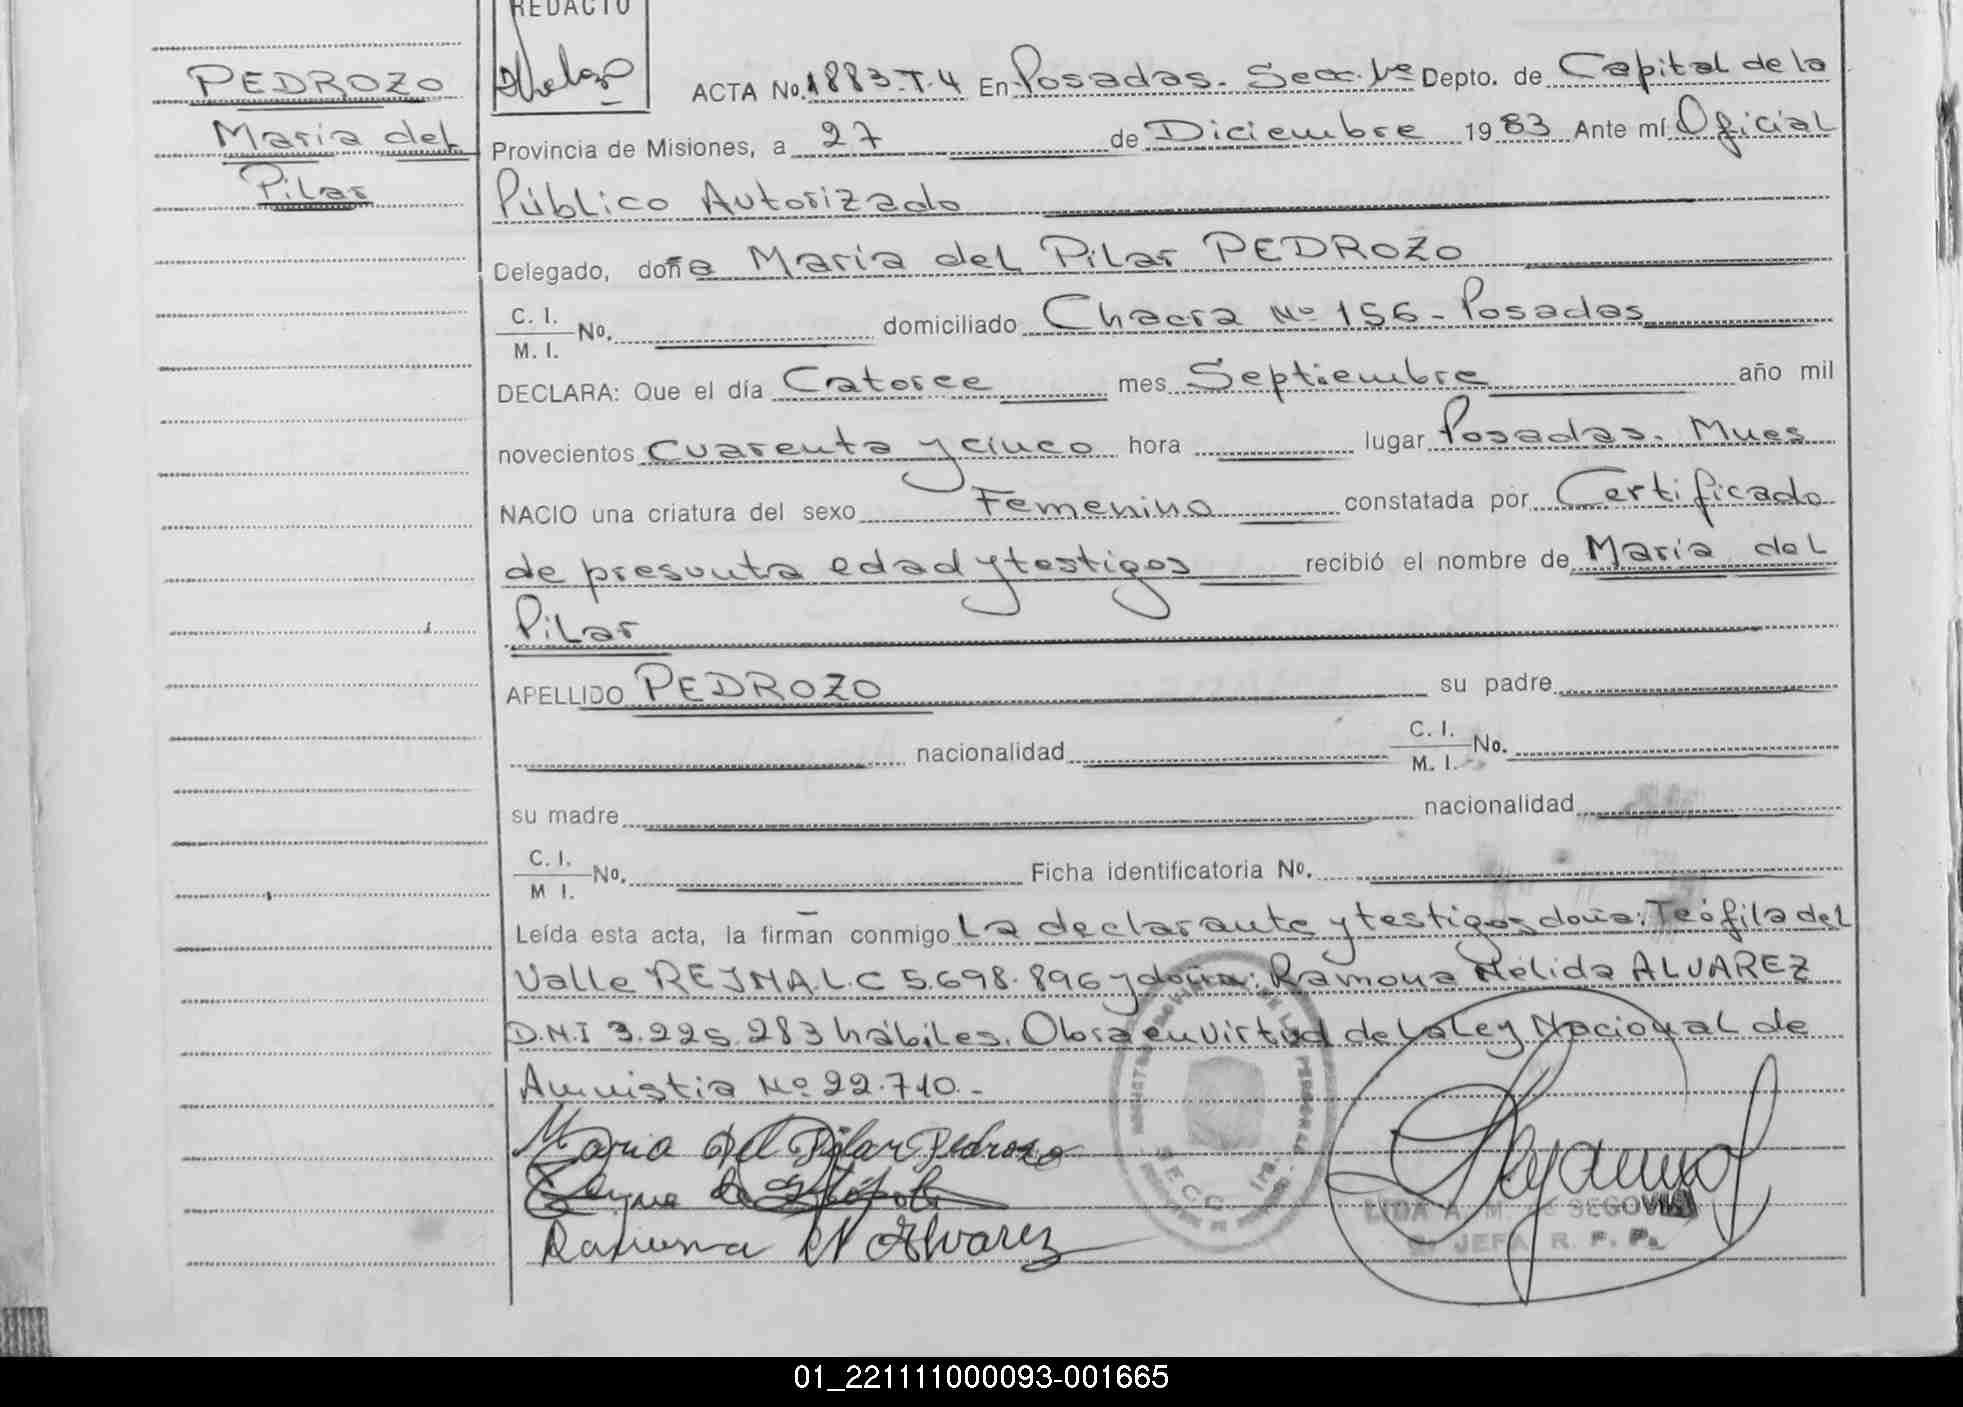 REDACTO
PEDROZO
María del
Pilar
ACTA No. 1883-T-4 En Posadas. Secc. 1ª Depto. de Capital de la
Provincia de Misiones, a 27 de Diciembre 1983 Ante mí Oficial
Público Autorizado
Delegado, doña María del Pilar PEDROZO
C. I.
M. I. No. domiciliado Chacra Nº 156 - Posadas
DECLARA: Que el día Catorce mes Septiembre año mil
novecientos Cuarenta y cinco hora lugar Posadas. Mnes
NACIO una criatura del sexo Femenino constatada por Certificado
de presunta edad y testigos recibió el nombre de María del
Pilar
APELLIDO PEDROZO su padre
nacionalidad C. I. No.
M. I.
su madre nacionalidad
C. I.
M I. No. Ficha identificatoria No.
Leída esta acta, la firman conmigo La declarante y testigos doña: Teófila del
Valle REJNA L.C 5.698.896 y doña: Ramona Nélida ALVAREZ
D.N.I 3.225.283 hábiles. Obra en virtud de la Ley Nacional de
Amnistia Nº 22.710.-
Maria del Pilar Pedrozo
Ramona N Alvarez
SECC. 1ra.
LIDA A. M. de SEGOVIA
JEFA R. P. P.
01_221111000093-001665